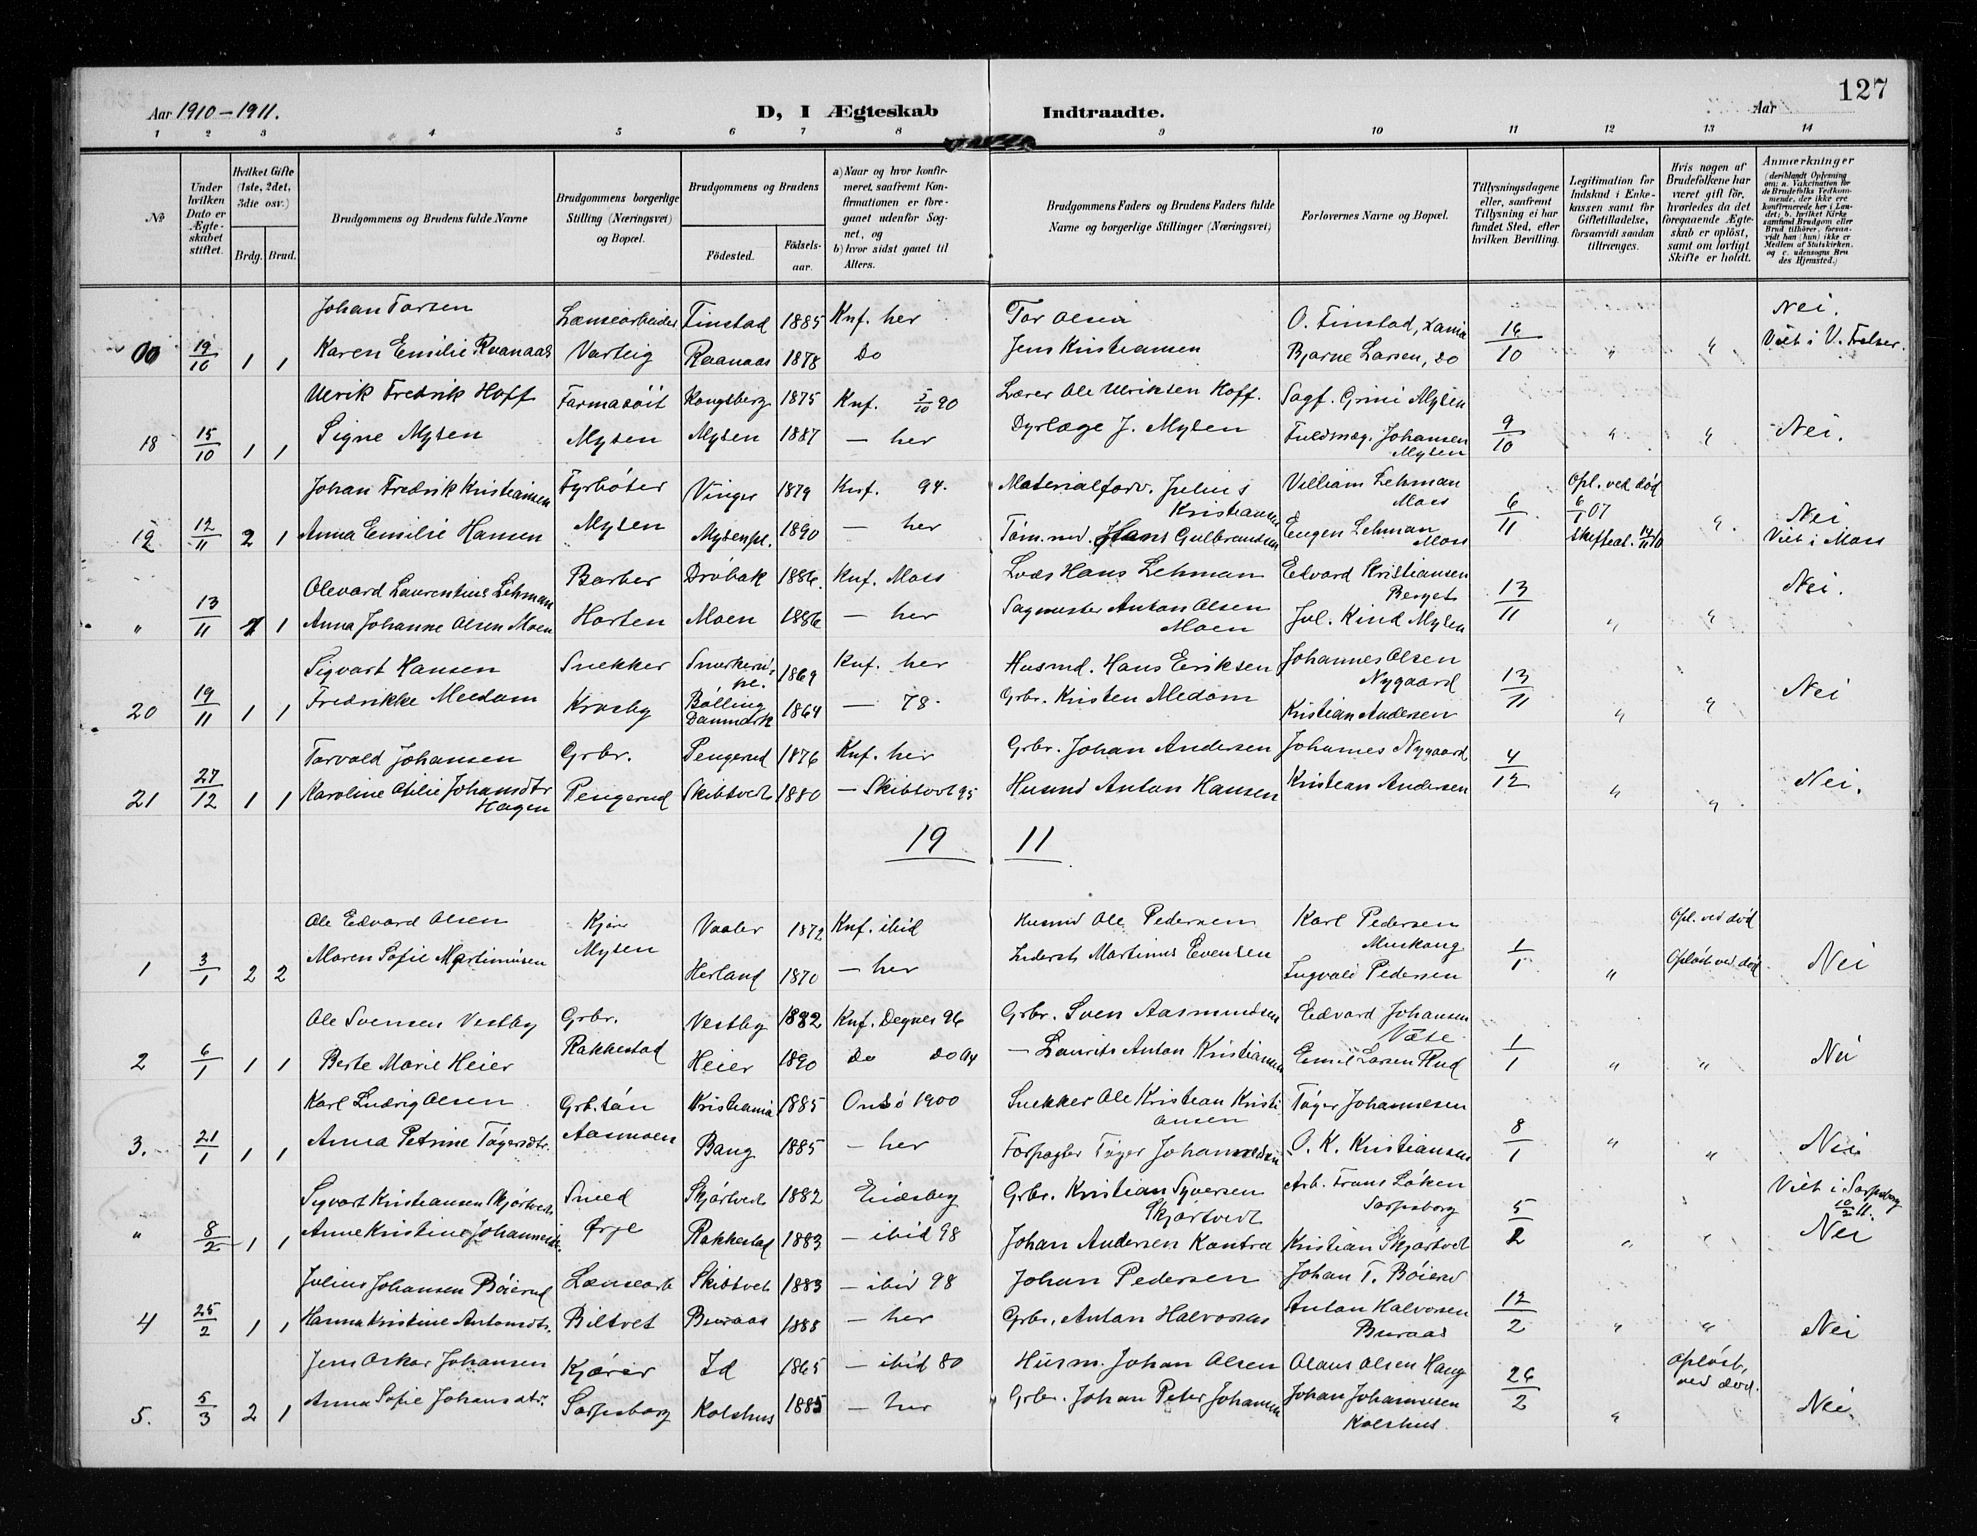 127
Aar 1910-1911. D, I Ægteskab Indtraadte. Aar
1 2 3 4 5 6 7 8 9 10 11 12 13 14
No
Under hvilken Dato er Ægteskabet stiftet.
Hvilket Gifte (1ste, 2det, 3die osv.)
Brdg. Brud.
Brudgommens og Brudens fulde Navne
Brudgommens borgerlige Stilling (Næringsvei) og Bopæl.
Brudgommens og Brudens
Födested. Födselsaar.
a) Naar og hvor konfirmeret, saafremt Konfirmationen er foregaaet udenfor Sognet, og
b) hvor sidst gaaet til Alters.
Brudgommens Faders og Brudens Faders fulde Navne og borgerlige Stillinger (Næringsvei)
Forlovernes Navne og Bopæl.
Tillysningsdagene eller, saafremt Tillysning ei har fundet Sted, efter hvilken Bevilling.
Legitimation for Indskud i Enkekassen samt for Giftetilladelse, forsaavidt saadan tiltrænges.
Hvis nogen af Brudefolkene har været gift för, hvorledes da det foregaaende Ægteskab er oplöst, samt om lovligt Skifte er holdt.
Anmærkninger (deriblandt Oplysning om: a. Vakcination for de Brudefolks Vedkommende, der ikke ere konfirmerede her i Landet; b. hvilket Kirkesamfund Brudgom eller Brud tilhörer, forsaavidt han (hun) ikke er Medlem af Statskirken. og c. udensogns Brudes Hjemsted.)
Johan Torsen Lænsearbeider Finstad 1885 Knf. her Tor Olsen O. Finstad, Nei.
00 19/10 1 1 Karen Emilie Raanaas Varteig Raanaas 1878 Do Jens Kristiansen Bjarne Larsen, do 16/10 " " Viet i V.
Ulrik Fredrik Hoff Farmasöit Kongsberg 1875 Knf. 5/10 90 Lærer Ole Ulriksen Hoff. Sagf. Grini Mysen
18 15/10 1 1 Signe Mysen Mysen Mysen 1887 — her Dyrlæge J. Mysen Fuldmæg. Johansen Mysen 9/10 " " Nei.
Johan Fredrik Kristiansen Fyrböter Vinger 1879 Knf. 94. Materialforv. Julius Kristiansen Villiam Lehman Moss Opl. ved död 6/1 07
19 12/11 2 1 Anna Emilie Hansen Mysen Mysenpl. 1890 — her Töm.md. Hans Gulbrandsen Eugen Lehman Moss 6/11 Skifteat. " Nei Viet i Moss
Olevard Laurentius Lehman Barber Dröbak 1886. Knf. Moss Lods Hans Lehman Edvard Kristiansen Berget Nei.
" 13/11 1 1 Anna Johanne Olsen Moen Horten Moen 1886 — her Sagmester Anton Olsen Moen Jul. Kind Mysen 13/11 " "
Sigvart Hansen Snekker 1869 Knf. her Husmd. Hans Eriksen Johannes Olsen Nygaard
20 19/11 1 1 Fredrikke Meedom Krosby Bölling Danmark 1864 — 78. Grbr. Kristen Medom Kristian Andersen 13/11 " " Nei
Torvald Johansen Grbr. Pengerud 1876 Knf. her Grbr. Johan Andersen Johannes Nygaard
21 27/12 1 1 Karoline Otilie Johansdtr Hagen Pengerud Skibtvedt 1880 — Skibtvet 95 Husmd Anton Hansen Kristian Andersen 4/12 " " Nei.
19 11
Ole Edvard Olsen Kjører Vaaler 1872 Knf. ibid Husmd Ole Pedersen Karl Pedersen Opl. ved död
1 3/1 2 2 Maren Sofie Martinusen Mysen Herland 1870 — her Martinus Evensen Ingvald Pedersen 1/1 " Oplöst ved död. Nei
Ole Svensen Vestby Grbr. Vestby 1882 Knf. Degnes 96 Grbr. Sven Aasmundsen Edvard Johansen
2 6/1 1 1 Berte Marie Heier Rakkestad Heier 1890 Do do 04 — Laurits Anton Kristiansen Emil Larsen Rud 1/1 " " Nei
Karl Ludvig Olsen Grb.sön Kristiania 1885 Onsö 1900 Snekker Ole Kristian Kristiansen Töger Johannesen
3. 21/1 1 1 Anna Petrine Tögersdtr. Aasmoen Baug 1885 — her Forpagter Töger Johannesen O. K. Kristiansen 8/1 " " Nei
Sigvart Kristiansen Skjörtvedt Smed Skjörtvedt 1882 Eidsberg Grbr. Kristian Syversen Skjørtvedt Arb. Frans Löken Sarpsborg Viet i Sarpsborg 10/2 11.
" 8/2 1 1 Anne Kristine Johannesdtr. Ørje Rakkestad 1883 — ibid 98 Johan Andersen Kantra Kristian Skjørtvedt 5/2 " " Nei
Julius Johansen Böierud Lænsearb Skibtvet 1883 — ibid 98 Johan Pedersen Johan T. Böierud
4 25/2 1 1 Hanna Kristine Antonsdtr. Biltvet Buraas 1888 — her Grbr. Anton Halvorsen Anton Halvorsen Buraas 12/2 " " Nei
Jens Oskar Johansen Kjører Id 1865 — ibid 80 Husm. Johan Olsen Olaus Olsen Haug Oplöst, ved död.
5. 5/3 2 1 Anna Sofie Johansdtr. Sarpsborg Kolshus 1885 — her Grbr. Johan Peter Johansen Johan Johannesen Kolshus 26/2 " Nei.